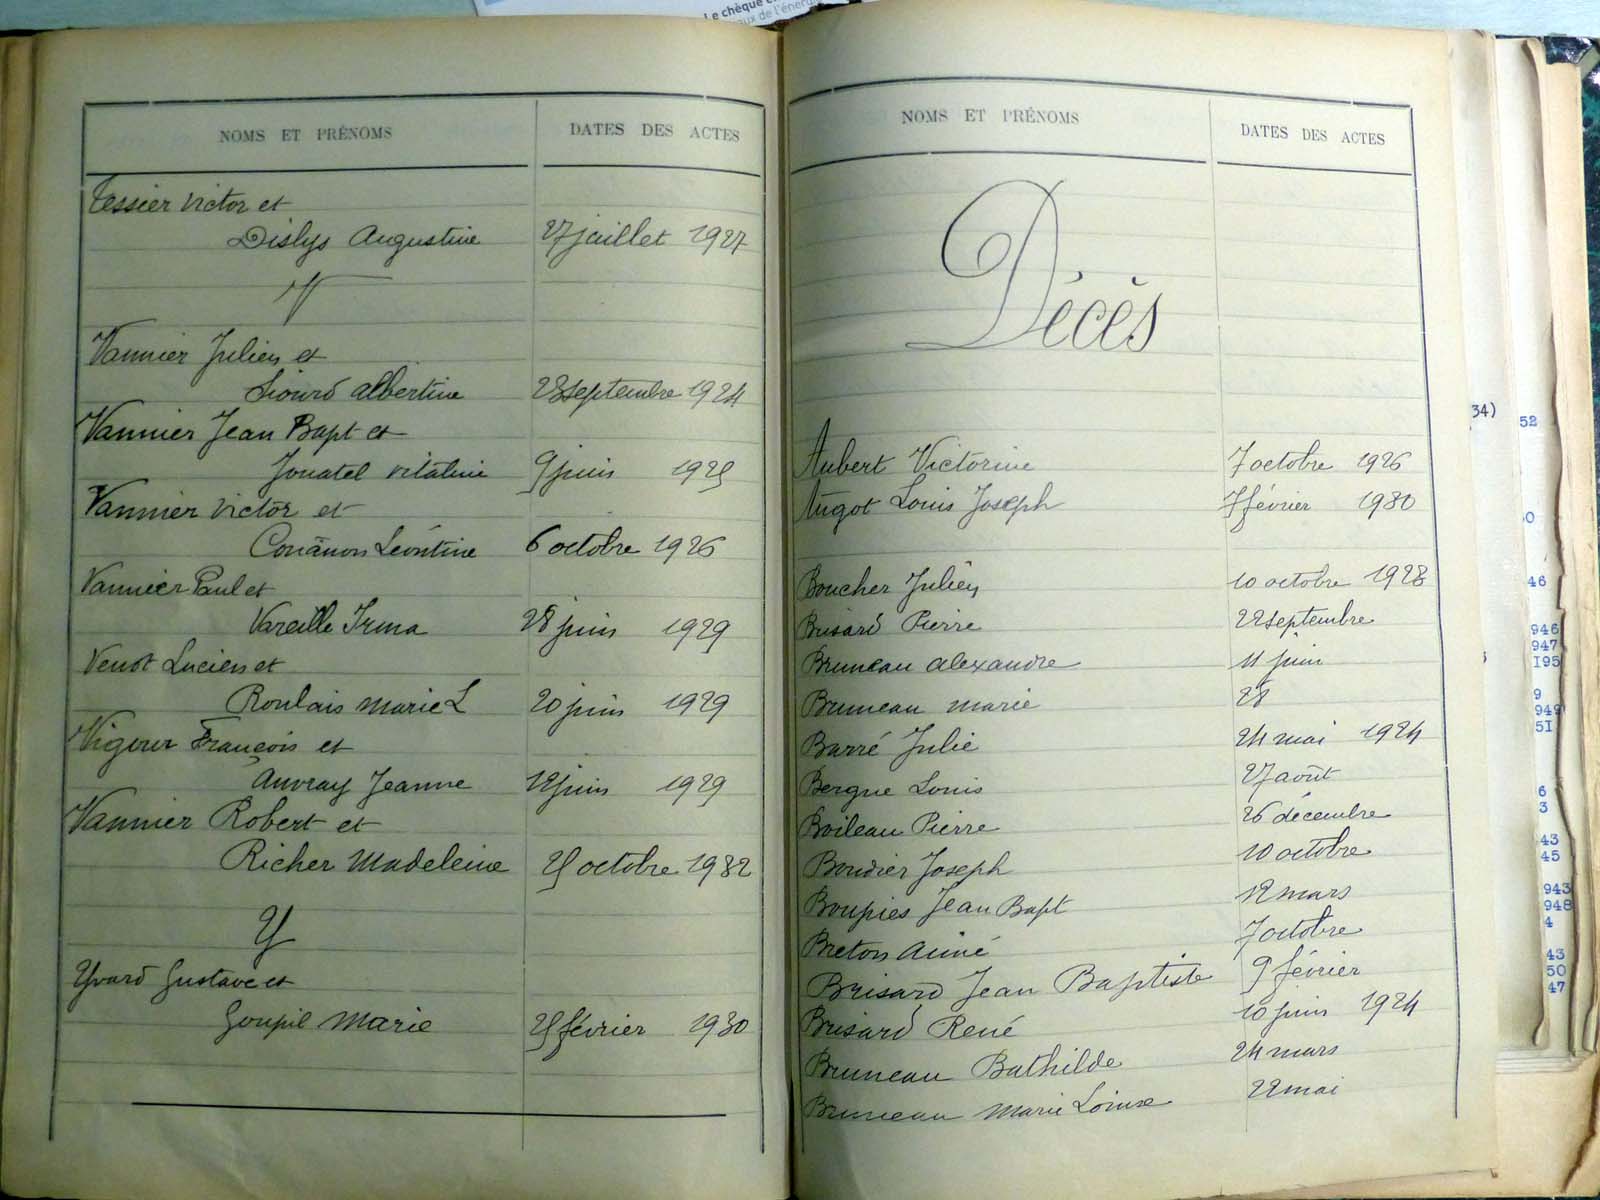 Le chèque
aux de l'énergie
NOMS ET PRÉNOMS DATES DES ACTES
Tessier Victor et
Dislys Augustine 27 juillet 1927
V
Vannier Julien et
Siourd Albertine 23 septembre 1924
Vannier Jean Bapt et
Jouatel Vitaline 9 juin 1925
Vannier Victor et
Couanon Léontine 6 octobre 1926
Vannier Paul et
Vareille Irma 28 juin 1929
Venot Lucien et
Roulais Marie L 20 juin 1929
Vigour François et
Auvray Jeanne 12 juin 1929
Vannier Robert et
Richer Madeleine 25 octobre 1932
Y
Yvard Gustave et
Goupil Marie 25 février 1930
NOMS ET PRÉNOMS DATES DES ACTES
Décès
Aubert Victorine 7 octobre 1926
Augot Louis Joseph 7 février 1930
Boucher Julien 10 octobre 1923
Brisard Pierre 22 septembre
Bruneau Alexandre 11 juin
Bruneau Marie 28
Barré Julie 24 mai 1924
Bergue Louis 27 août
Boileau Pierre 26 décembre
Bourdier Joseph 10 octobre
Boupies Jean Bapt 12 mars
Breton Aimé 7 octobre
Brisard Jean Baptiste 9 février
Brisard René 10 juin 1924
Bruneau Bathilde 24 mars
Bruneau Marie Louise 22 mai
34)
52
46
946
947
195
9
949
51
6
3
43
45
943
948
4
43
50
47